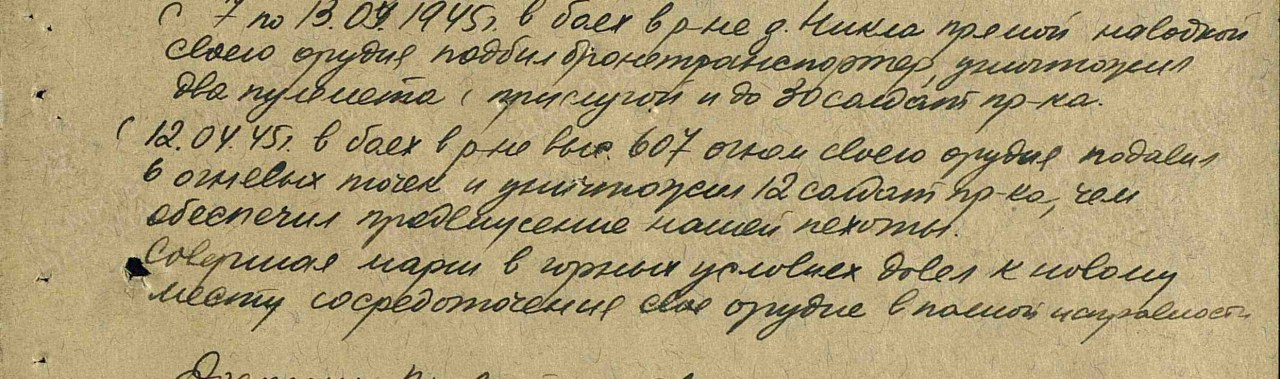 С 7 по 13.04.1945г. в боях в р-не д. Никла прямой наводкой
своего орудия подбил бронетранспортер, уничтожил
два пулемета с прислугой и до 30 солдат пр-ка.
12.04.45г. в боях в р-не выс. 607 огнем своего орудия подавил
6 огневых точек и уничтожил 12 солдат пр-ка, чем
обеспечил продвижение нашей пехоты.
Совершая марш в горных условиях довел к новому
месту сосредоточения свое орудие в полной исправности